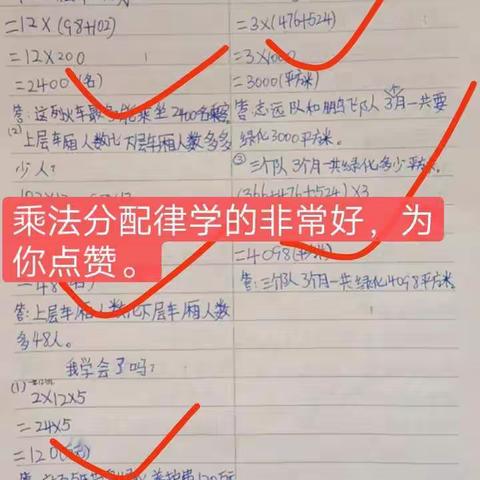 =12×(98+102)
=12×200
=2400(名)
答:这列火车最多能乘坐2400名乘客
(2)上层车厢人数比下层车厢人数多多
少人?
乘法分配律学的非常好，为
你点赞。
=48(名)
答:上层车厢人数比下层车厢人数
多48人。
我学会了吗?
(1)
2×12×5
=24×5
=120
=3×(476+524)
=3×1000
=3000(平方米)
答:志远队和鹏飞队3个月一共要
绿化3000平方米。
③三个队3个月一共绿化多少平方米。
(366+476+524)×3
=4098(平方米)
答:三个队3个月一共绿化4098平方米